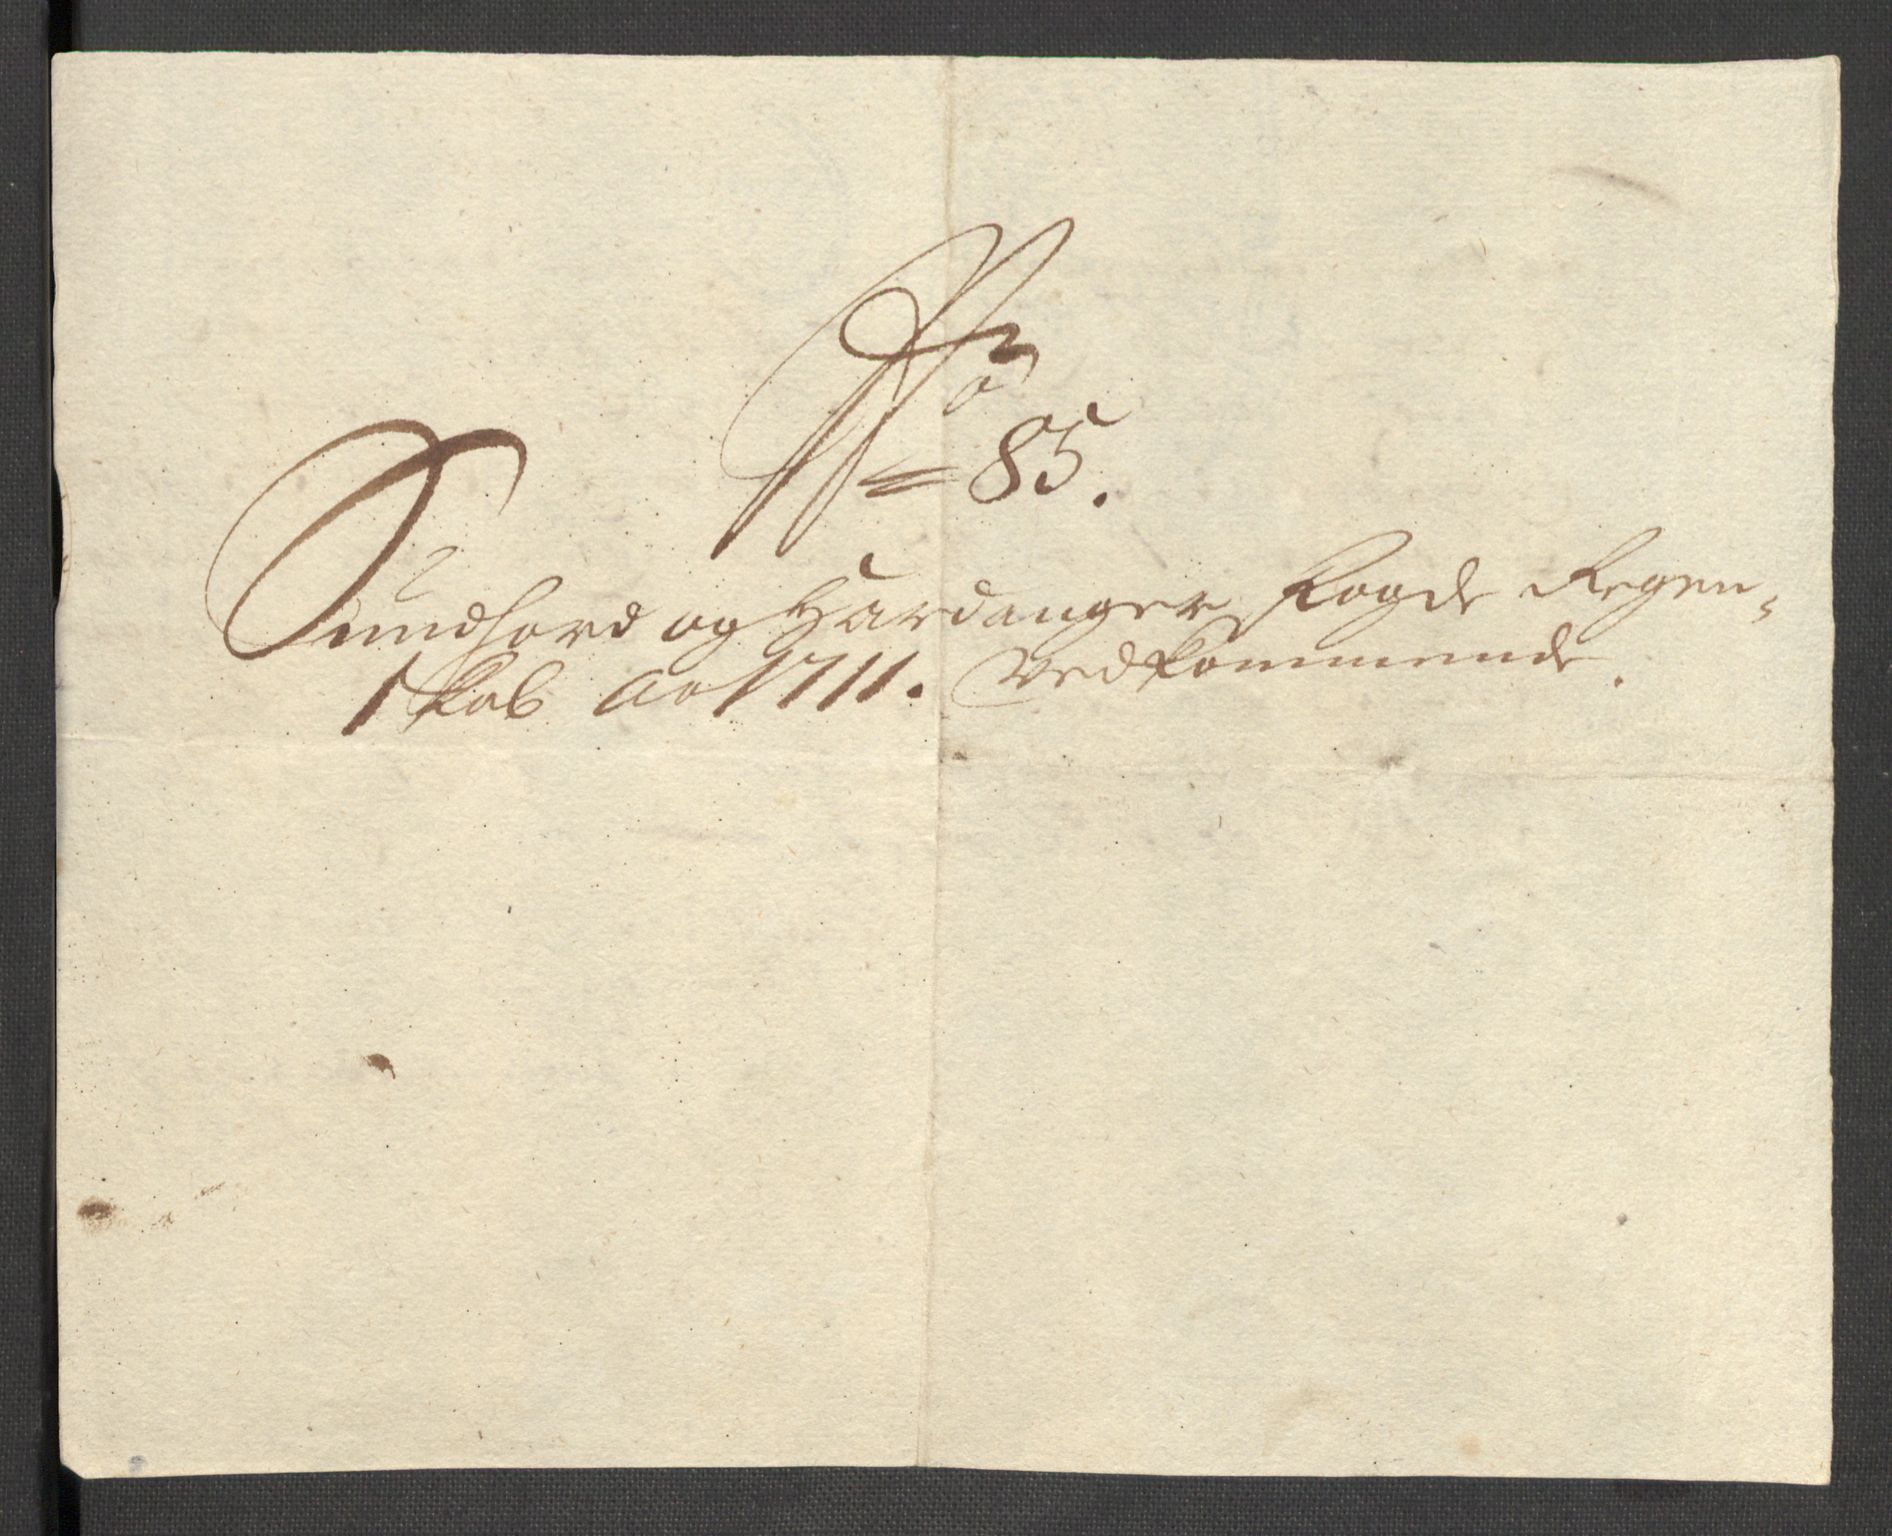 No
85.
Sundhord og Hardanger Fogde Regen-
skab Ao 1711. Vedkommende.